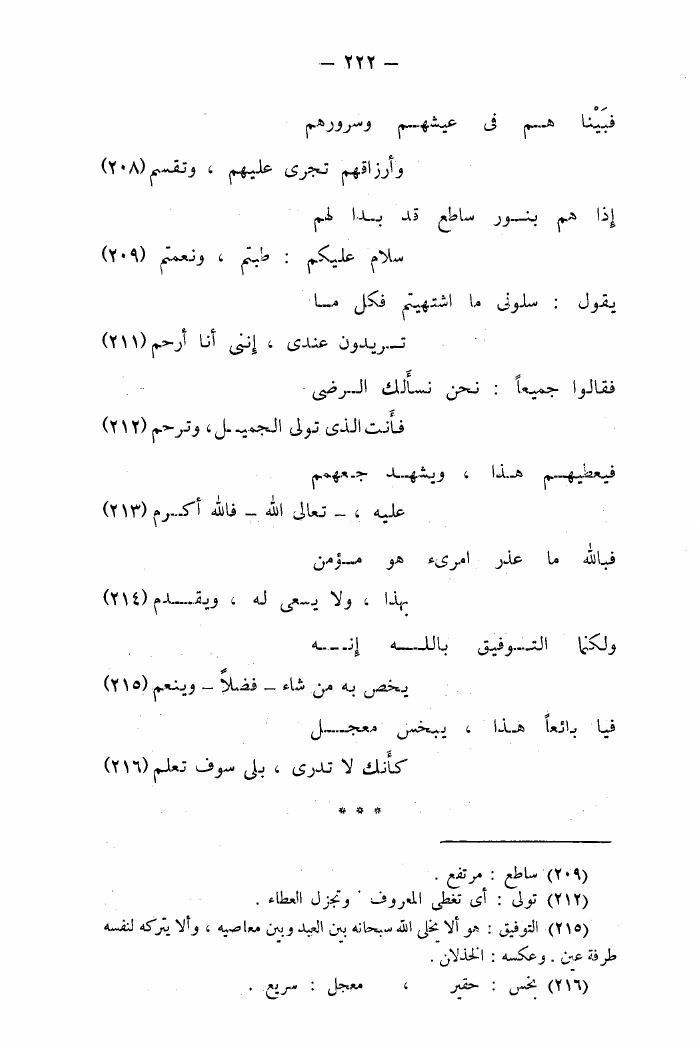 — ٢٢٢ —
فبَيْنا هم فى عيشهم وسرورهم
وأرزاقهم تجرى عليهم ، وتقسم (٢٠٨)
إذا هم بنور ساطع قد بدا لهم
سلام عليكم : طبتم ، ونعمتم (٢٠٩)
يقول : سلونى ما اشتهيتم فكل ما
تريدون عندى ، إننى أنا أرحم (٢١١)
فقالوا جميعاً : نحن نسألك الرضى
فأنت الذى تولى الجميل، وترحم (٢١٢)
فيعطيهم هذا ، ويشهد جمعهم
عليه ، – تعالى الله – فالله أكرم (٢١٣)
فبالله ما عذر امرىء هو مؤمن
بهذا ، ولا يسعى له ، ويقدم (٢١٤)
ولكنما التوفيق بالله إنه
يخص به من شاء – فضلاً – وينعم (٢١٥)
فيا بائعاً هذا ، ببخس معجل
كأنك لا تدرى ، بلى سوف تعلم (٢١٦)
* * *
(٢٠٩) ساطع : مرتفع .
(٢١٢) تولى : أى تغطى المعروف وتجزل العطاء .
(٢١٥) التوفيق : هو ألا يخلى الله سبحانه بين العبد وبين معاصيه ، وألا يتركه لنفسه
طرفة عين . وعكسه : الخذلان .
(٢١٦) بخس : حقير ، معجل : سريع .